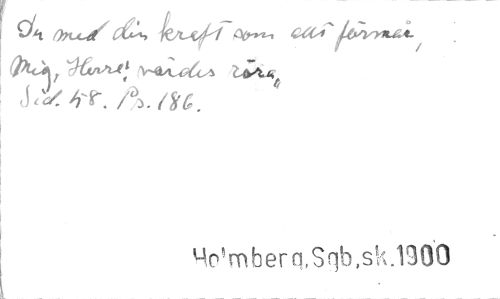 Du med din kraft som allt förmår,
Mig, Herre! värdes röra„
Sid. 48. Ps. 186.
Holmberg,Sgb,sk.1900